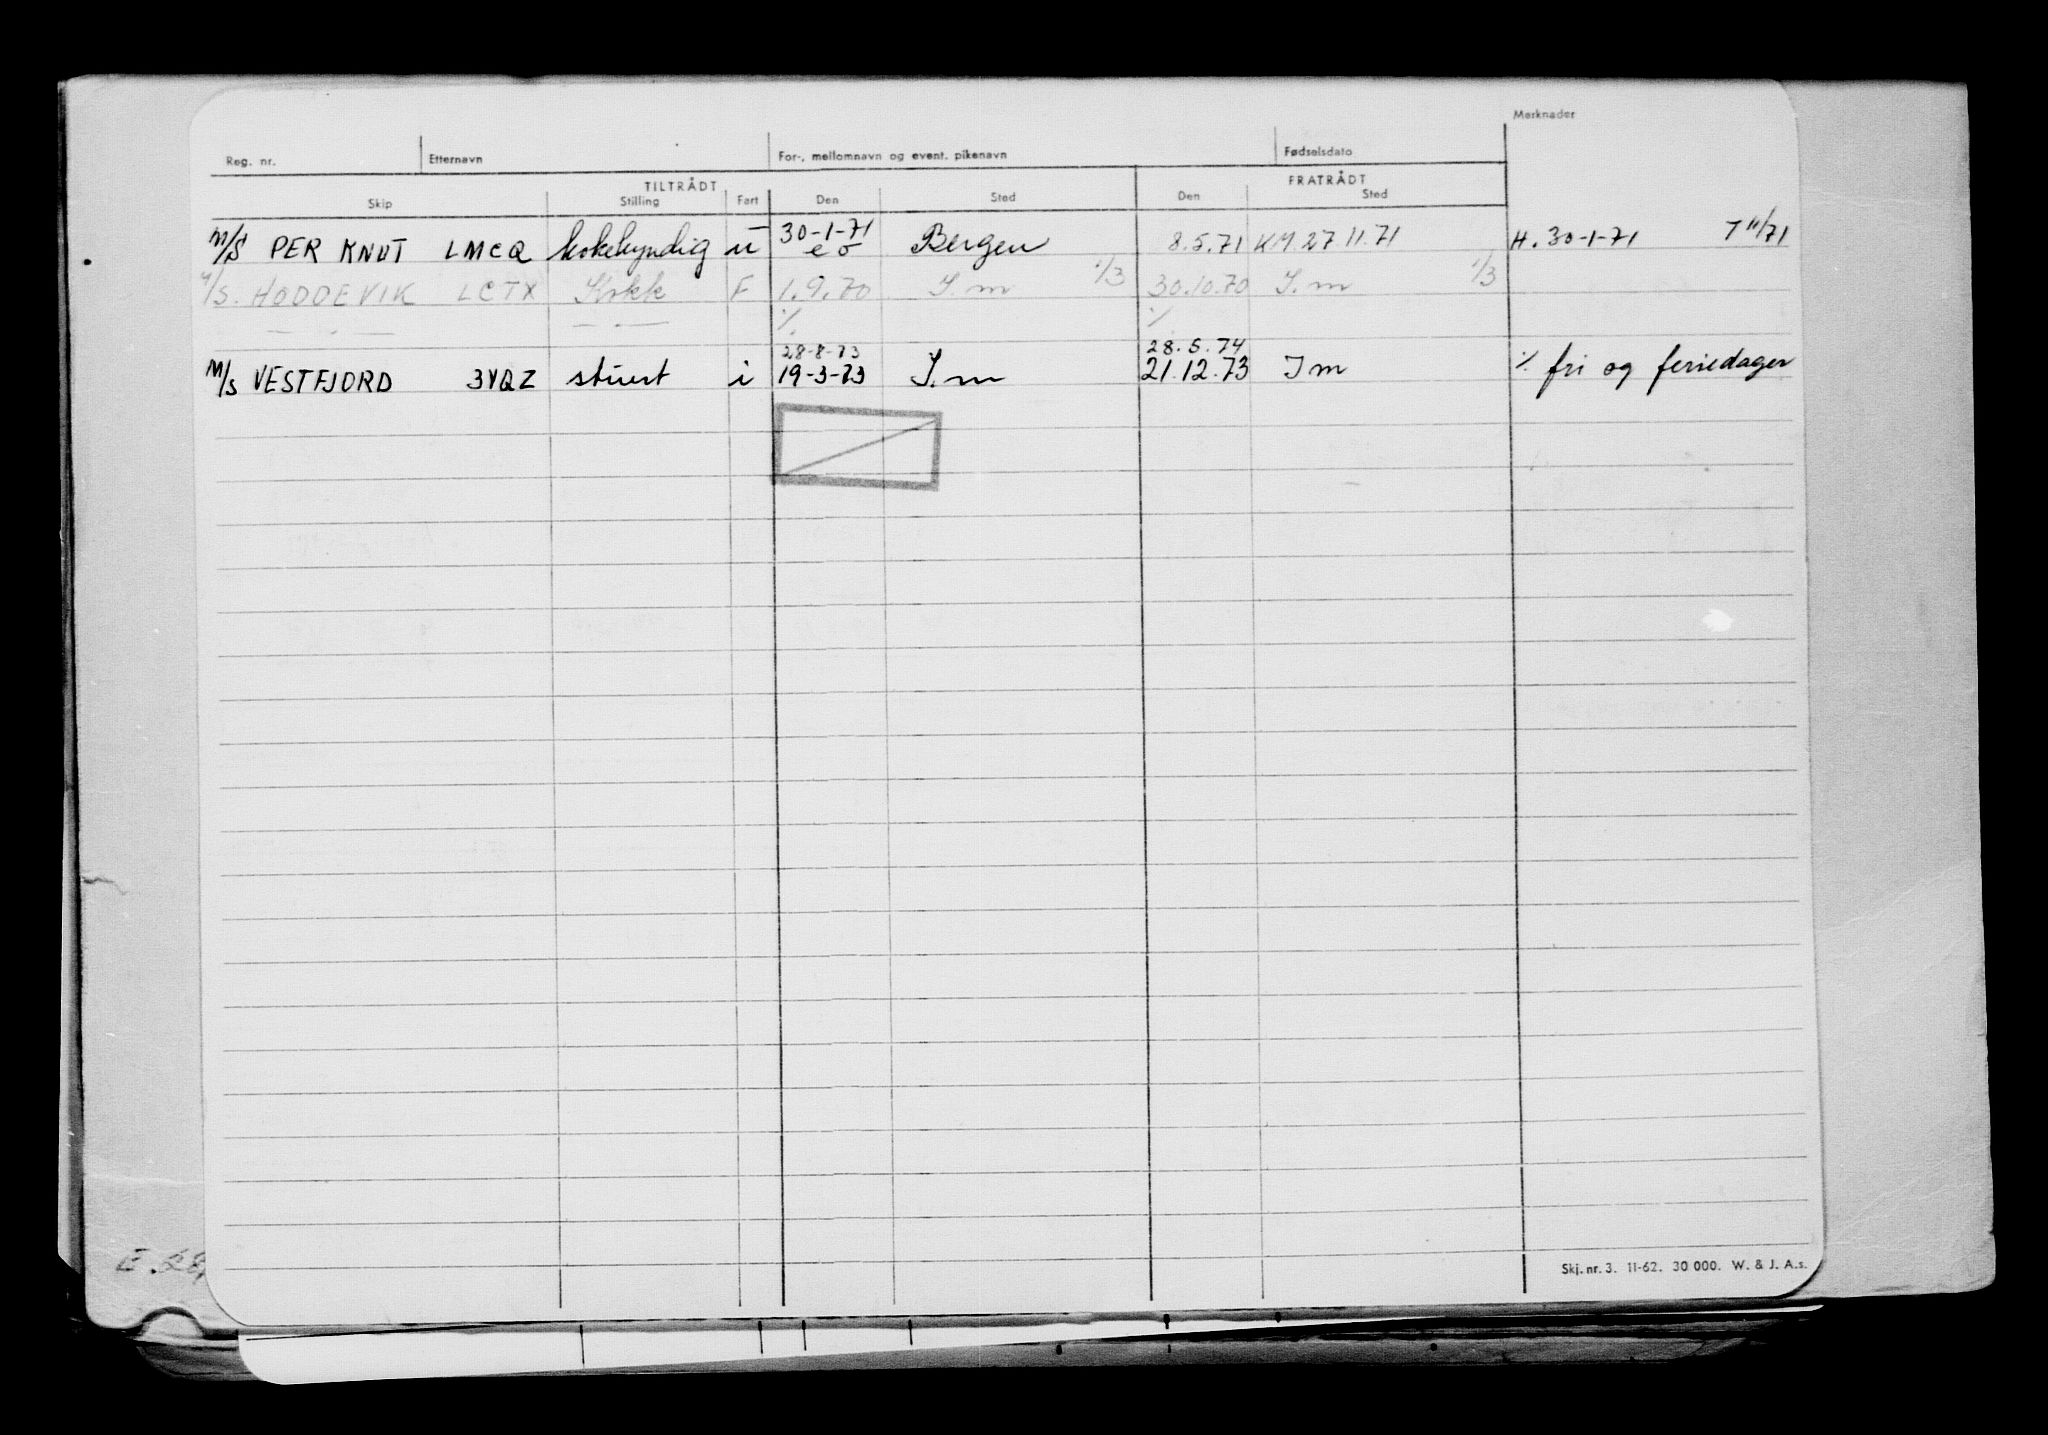 Merknader
Reg. nr. Etternavn For-, mellomnavn og event. pikenavn Fødselsdato
TILTRÅDT FRATRÅDT
Skip Stilling Fart Den Sted Den Sted
M/S PER KNUT LMCQ kokekyndig u 30-1-71 Bergen 8.5.71 KY. 27.11.71 H. 30-1-71 T 11/71
e o
M/S. HODDEVIK LCTX Kokk F 1.9.70 S.m 1/3 30.10.70 S.m 1/3
— . — — . — ./. ./.
28-8-73 28.5.74
M/S VESTFJORD 3YQZ stuert i 19-3-73 S.m 21.12.73 Sm ./. fri og feriedager
E.
Skj. nr. 3. 11-62. 30 000. W. & J. A.s.